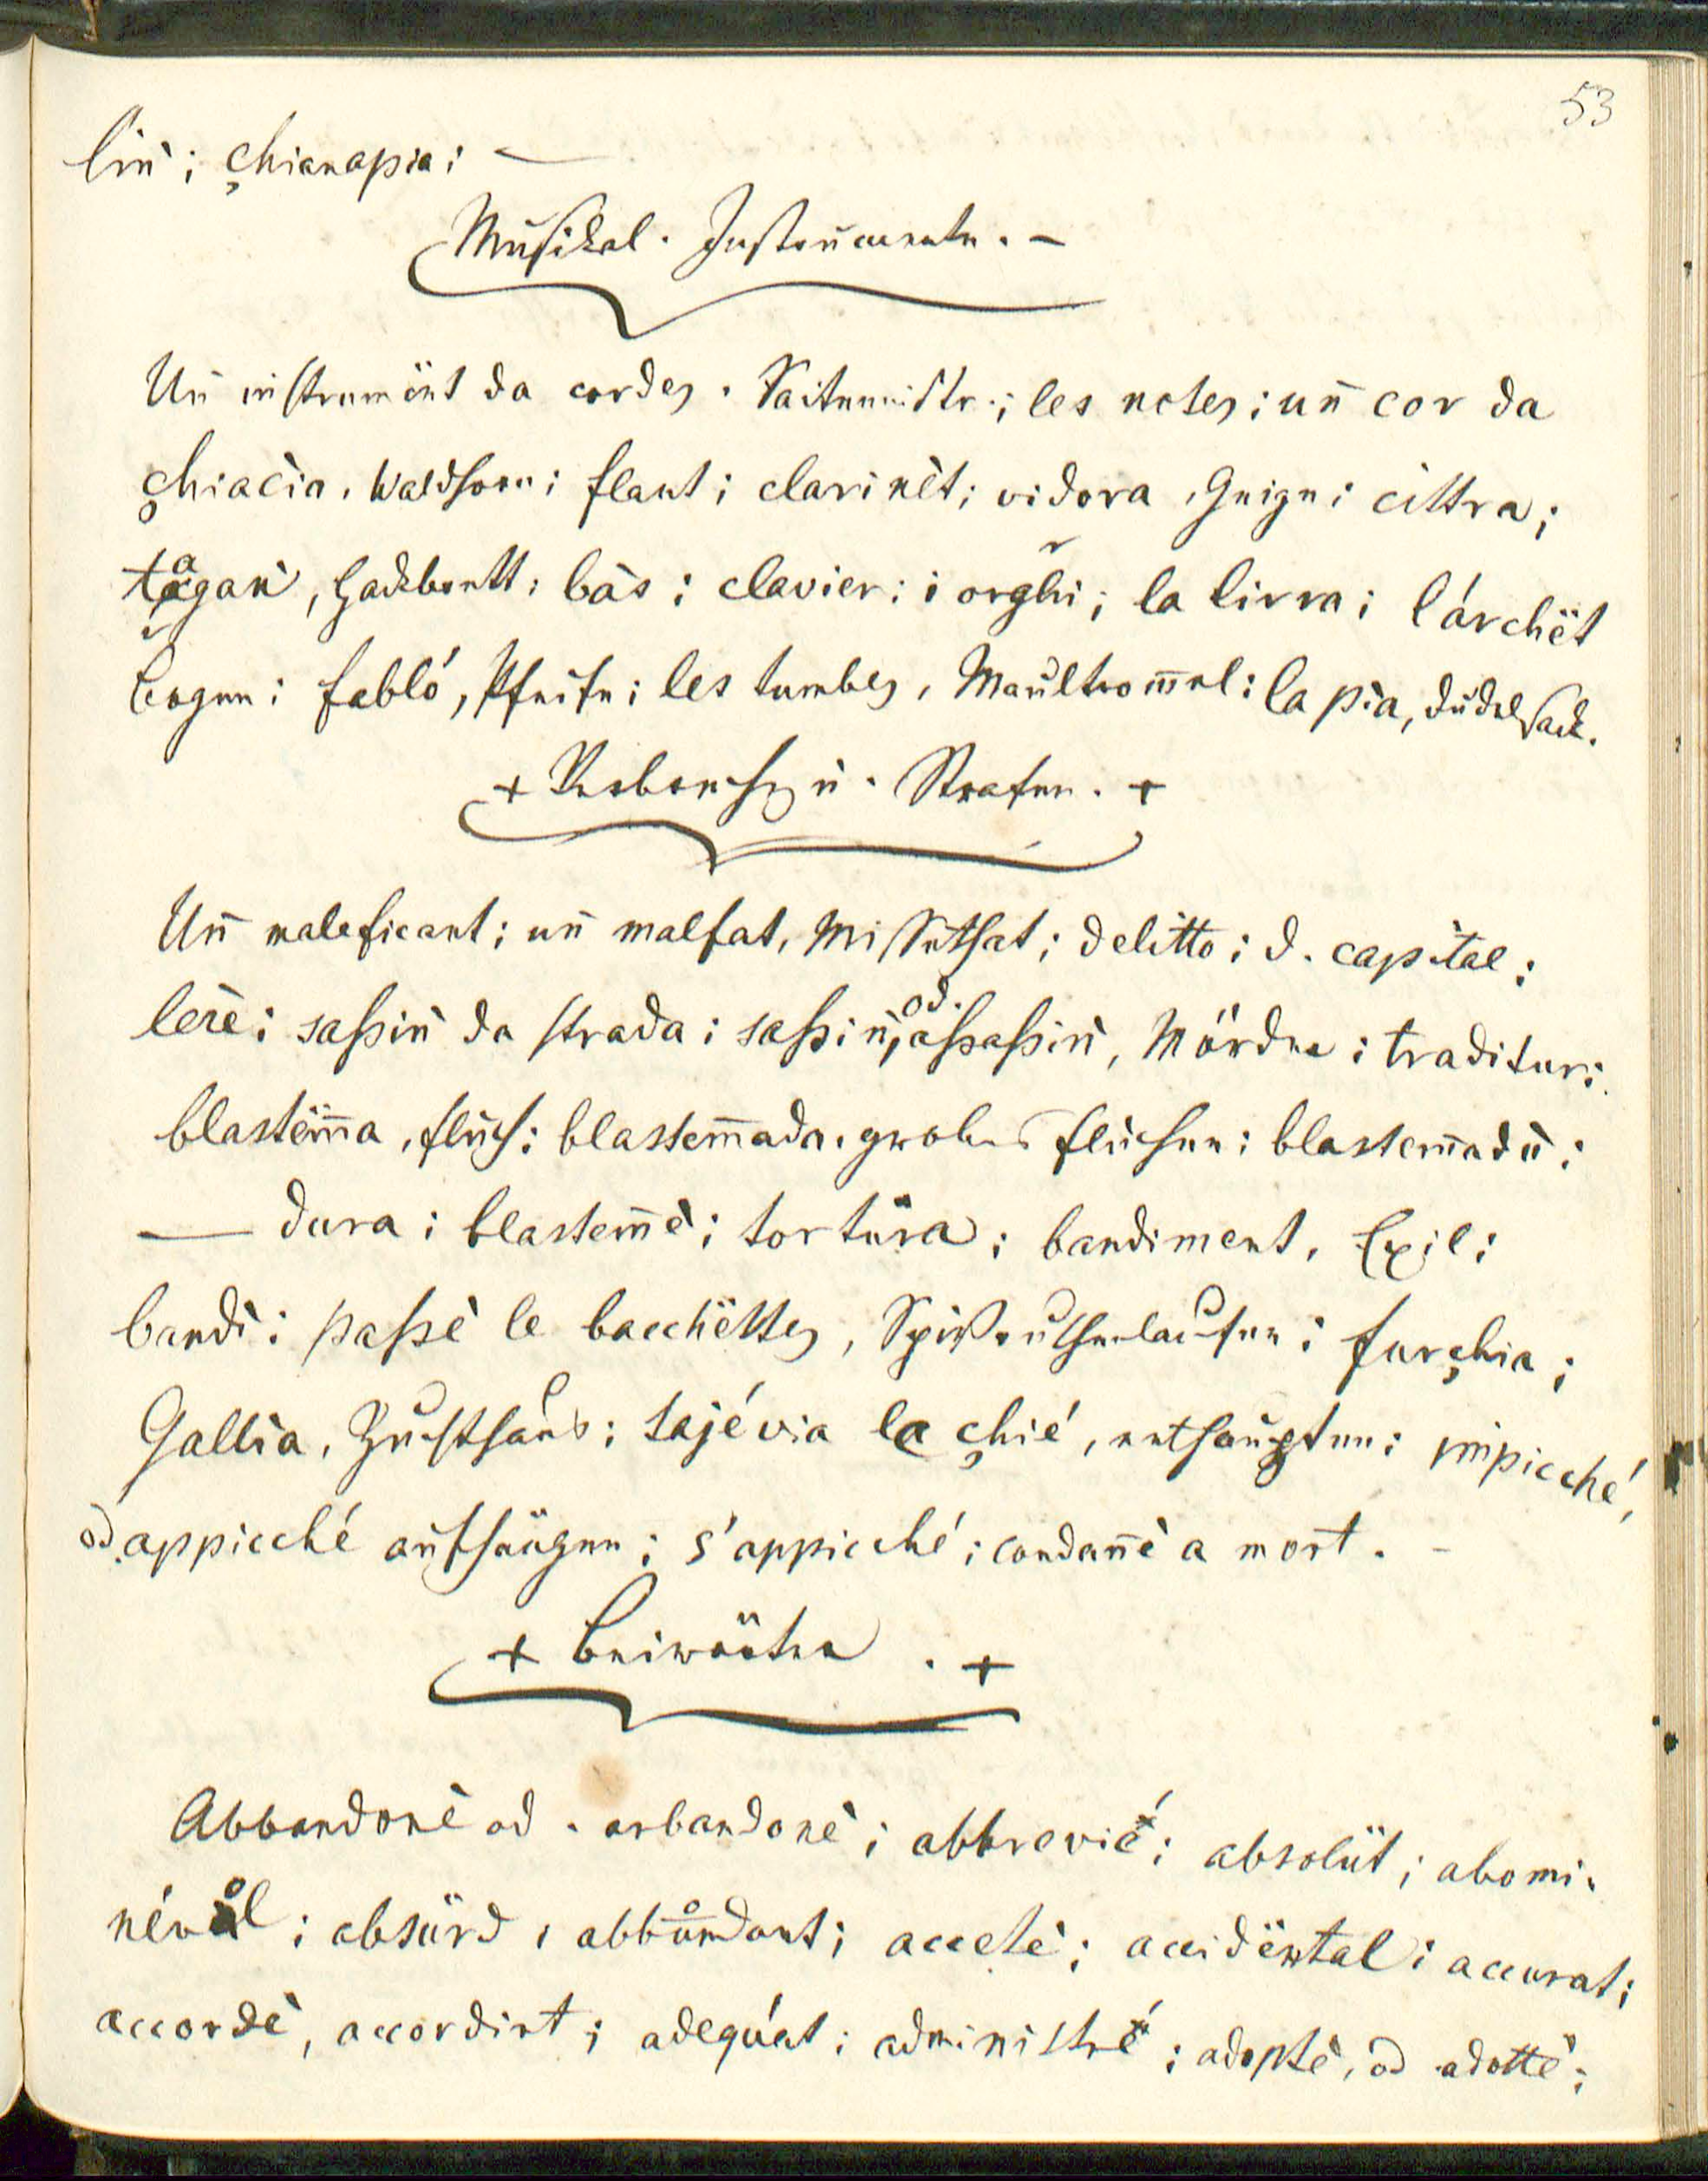 53
lin̄; çhianapia; —
Musikal. Instrumente. —
Un̄ instrumënt da cordes. Saiteninstr.; les notes; un̄ cor da
çhiacia, Waldhorn; flaut; clarinèt; vidora, Geige; cittra;
tägan̄, Hackbrett; bàs; clavier; i orghi; la lirra; l'árchët
Bogen; fabló, Pfeife; les tumbes, Maultrom̄el; la pia, Dudelsack.
+ Verbrech. u. Strafen. +
Un̄ maleficant; un̄ malfat, Missethat; delitto; d. capital;
lerè; saßin̄ da strada; saßin̄, od. aßaßin̄, Mörder; traditur;
blastëm̄a, Fluch; blastem̄ada, grobes Fluchen; blastem̄adù;
— dura; blastem̄è; tortüra; bandiment, Exil;
bandì; paßè le bacchëttes, Spißruthenlaufen; furçhia;
Gallìa, Zuchthaus; tajé via le çhié, enthaupten; impicché,
od. appicché aufhängen; s'appicché; condan̄è a mort. -
+ Beiwörter. +
Abbandonè od. arbandonè; abbrevié; absolüt; abomi-
névol; absürd, abbondant; accetè; accidëntal; accurat;
accordè, accordirt; adequát; administré; adoptè, od adottè;